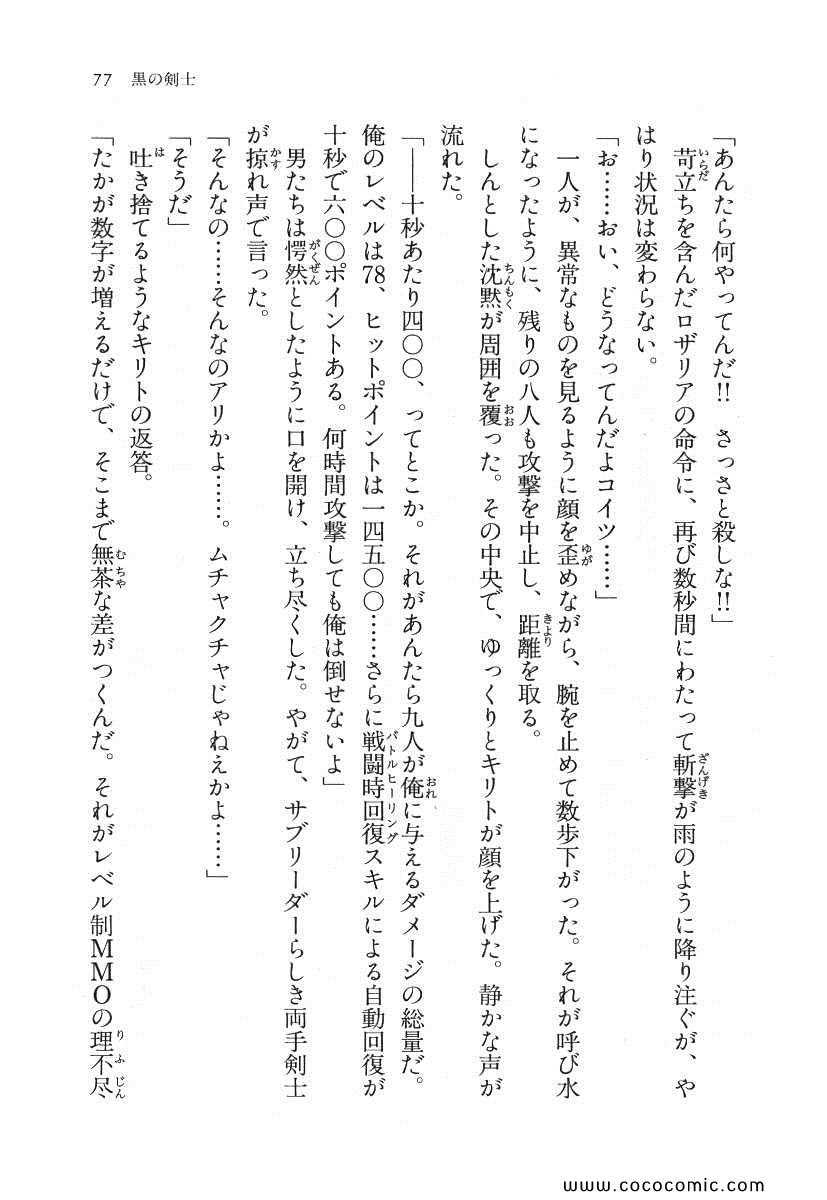 77　黒の剣士
「あんたら何やってんだ!!　さっさと殺しな!!」
　苛立ちを含んだロザリアの命令に、再び数秒間にわたって斬撃が雨のように降り注ぐが、や
はり状況は変わらない。
「お……おい、どうなってんだよコイツ……」
　一人が、異常なものを見るように顔を歪めながら、腕を止めて数歩下がった。それが呼び水
になったように、残りの八人も攻撃を中止し、距離を取る。
　しんとした沈黙が周囲を覆った。その中央で、ゆっくりとキリトが顔を上げた。静かな声が
流れた。
「――十秒あたり四〇〇、ってとこか。それがあんたら九人が俺に与えるダメージの総量だ。
俺のレベルは78、ヒットポイントは一四五〇〇……さらに戦闘時回復スキルによる自動回復が
十秒で六〇〇ポイントある。何時間攻撃しても俺は倒せないよ」
　男たちは愕然としたように口を開け、立ち尽くした。やがて、サブリーダーらしき両手剣士
が掠れ声で言った。
「そんなの……そんなのアリかよ……。ムチャクチャじゃねえかよ……」
「そうだ」
　吐き捨てるようなキリトの返答。
「たかが数字が増えるだけで、そこまで無茶な差がつくんだ。それがレベル制ＭＭＯの理不尽
www.cococomic.com